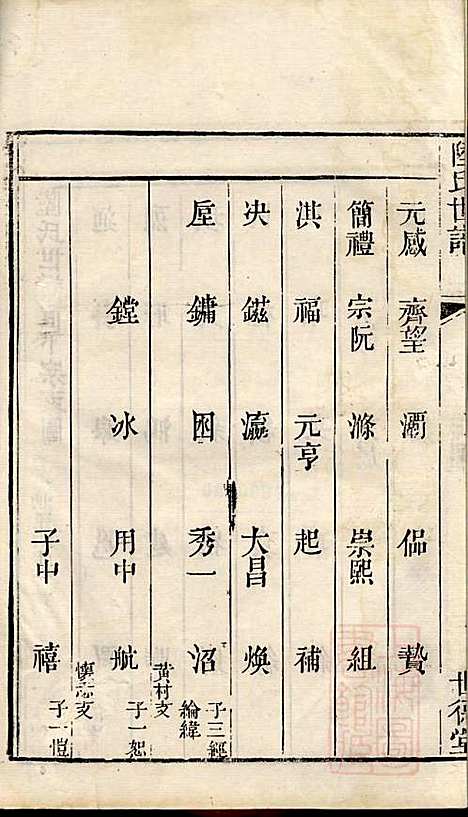 陸氏世譜
世德堂
元感 齊望 灞 侃 贄
簡禮 宗阮 滌 崇熙 組
淇 福 元亨 起 補
決 鎡 瀛 大昌 煥
垕 鏞 困 秀一 沼 子三經綸緯
鏜 冰 用中 航 黃村支 子一恕
子中 禧 懷志支 子一愷